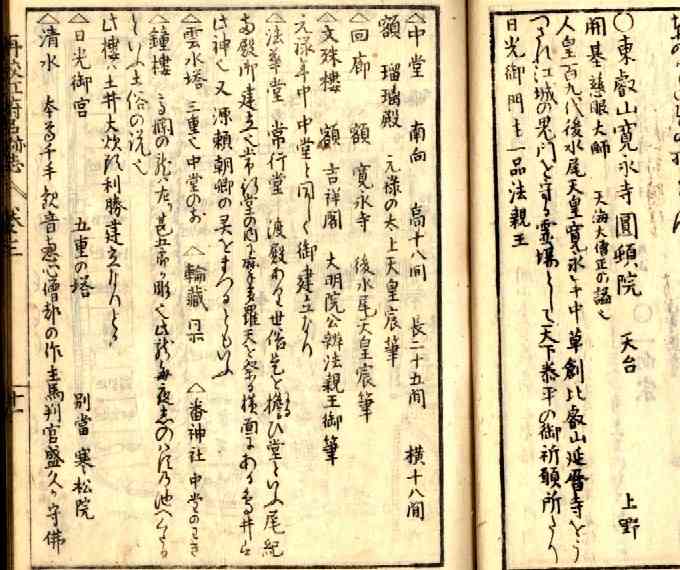 ○東叡山寛永寺圓頓院　天台　上野
開基慈眼大師　天海大僧正の諡也
人皇百九代後水尾天皇寛永年中草創比叡山延暦寺をう
つされ江城の鬼門を守る霊場として天下泰平の御祈願所なり
日光御門主一品法親王
△中堂　南向　高十八間　長二十五間　横十八間
額　瑠璃殿　元禄の太上天皇宸筆
△回廊　額　寛永寺　後水尾天皇宸筆
△文殊樓　額　吉祥閣　大明院公辨法親王御筆
元禄年中中堂と同しく御建立なり
△法華堂　常行堂　渡殿あり世俗是を擔ひ堂といふ尾紀
両殿御建立也常行堂の内に摩多羅天を祭る横面にある鳥井は
此神也又源頼朝卿の灵をまつるともいふ
△雲水塔　三重也中堂のお　△輪藏　同　△番神社　中堂のわき
△鐘樓
といふ土俗の説也
此樓ハ土井大炊頭利勝建立なりとそ
△日光御宮　五重の塔　別當　寒松院
△清水　本尊千手観音恵心僧都の作主馬判官盛久か守佛
再校江府名跡志　巻之三　十一